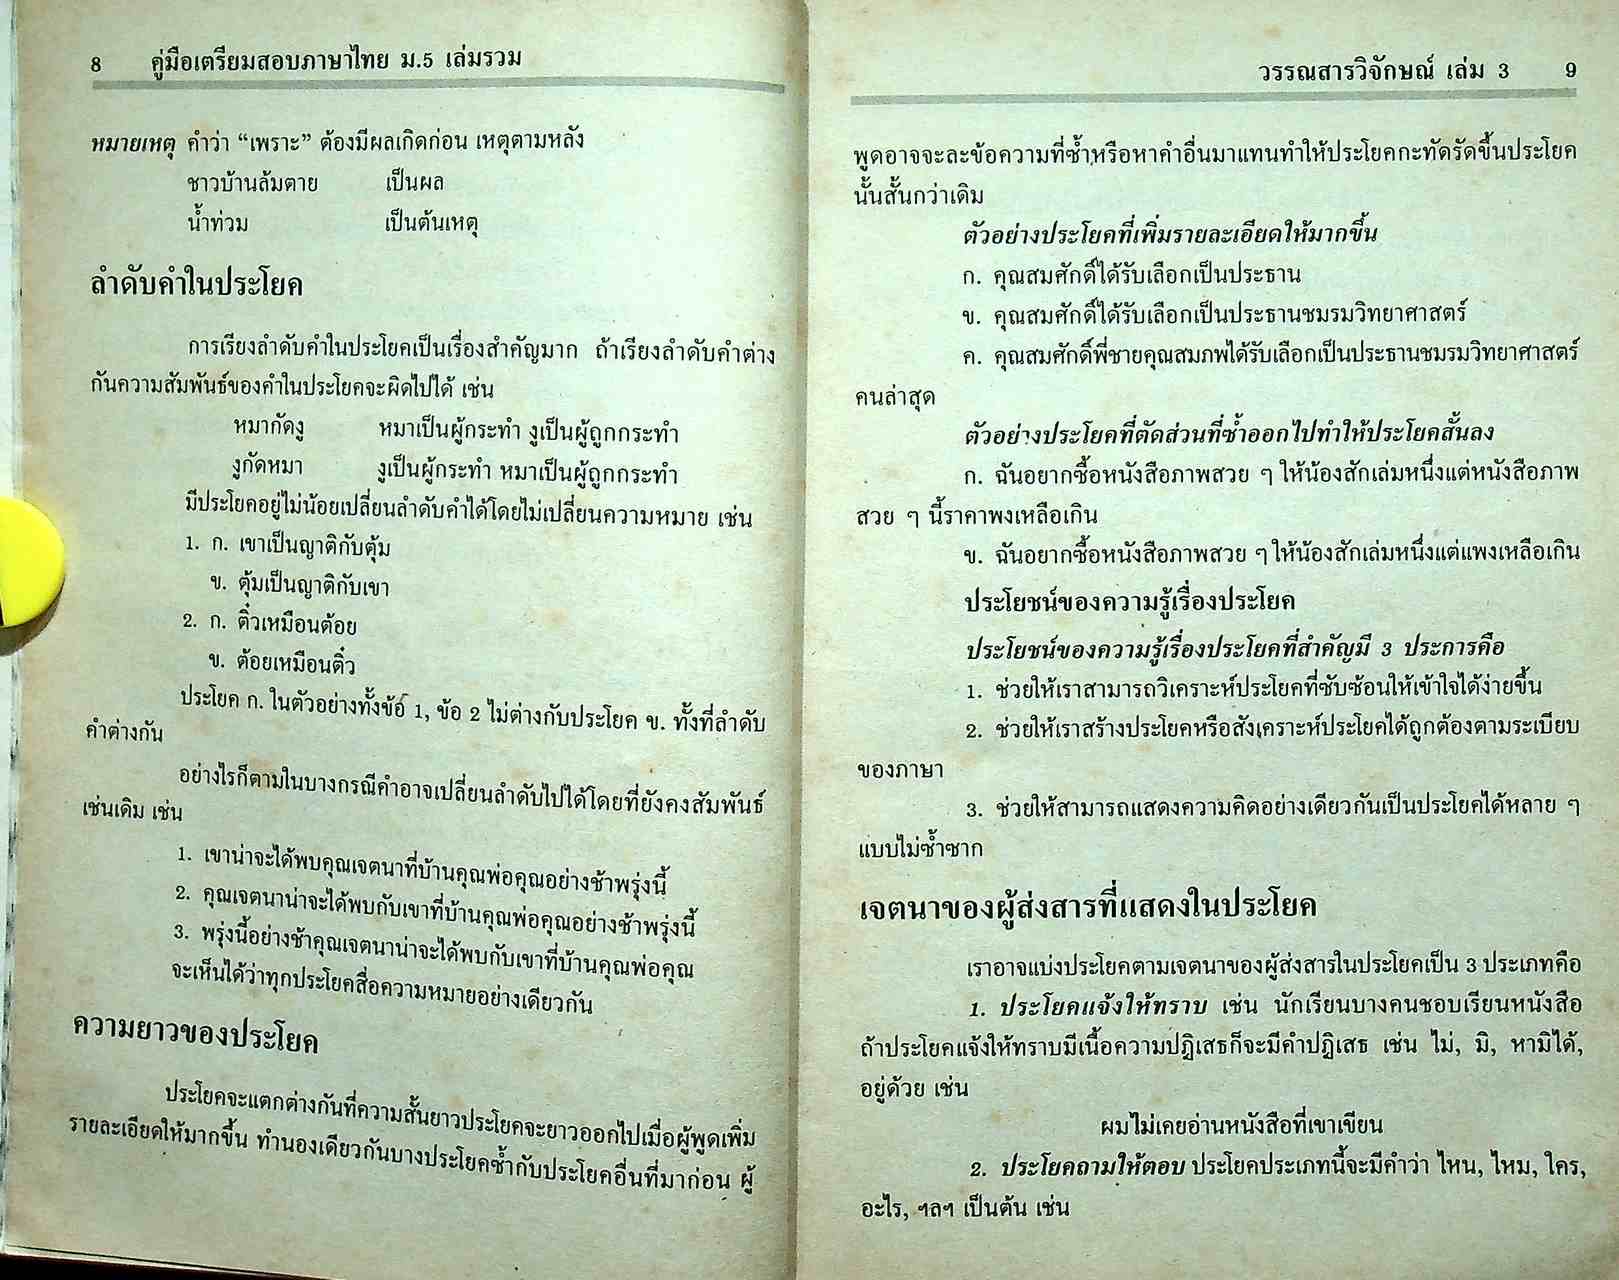 8 คู่มือเตรียมสอบภาษาไทย ม.5 เล่มรวม
หมายเหตุ คำว่า “เพราะ” ต้องมีผลเกิดก่อน เหตุตามหลัง
ชาวบ้านล้มตาย เป็นผล
น้ำท่วม เป็นต้นเหตุ
ลำดับคำในประโยค
การเรียงลำดับคำในประโยคเป็นเรื่องสำคัญมาก ถ้าเรียงลำดับคำต่าง
กันความสัมพันธ์ของคำในประโยคจะผิดไปได้ เช่น
หมากัดงู หมาเป็นผู้กระทำ งูเป็นผู้ถูกกระทำ
งูกัดหมา งูเป็นผู้กระทำ หมาเป็นผู้ถูกกระทำ
มีประโยคอยู่ไม่น้อยเปลี่ยนลำดับคำได้โดยไม่เปลี่ยนความหมาย เช่น
1. ก. เขาเป็นญาติกับตุ้ม
ข. ตุ้มเป็นญาติกับเขา
2. ก. ติ๋วเหมือนต้อย
ข. ต้อยเหมือนติ๋ว
ประโยค ก. ในตัวอย่างทั้งข้อ 1, ข้อ 2 ไม่ต่างกับประโยค ข. ทั้งที่ลำดับ
คำต่างกัน
อย่างไรก็ตามในบางกรณีคำอาจเปลี่ยนลำดับไปได้โดยที่ยังคงสัมพันธ์
เช่นเดิม เช่น
1. เขาน่าจะได้พบคุณเจตนาที่บ้านคุณพ่อคุณอย่างช้าพรุ่งนี้
2. คุณเจตนาน่าจะได้พบกับเขาที่บ้านคุณพ่อคุณอย่างช้าพรุ่งนี้
3. พรุ่งนี้อย่างช้าคุณเจตนาน่าจะได้พบกับเขาที่บ้านคุณพ่อคุณ
จะเห็นได้ว่าทุกประโยคสื่อความหมายอย่างเดียวกัน
ความยาวของประโยค
ประโยคจะแตกต่างกันที่ความสั้นยาวประโยคจะยาวออกไปเมื่อผู้พูดเพิ่ม
รายละเอียดให้มากขึ้น ทำนองเดียวกันบางประโยคซ้ำกับประโยคอื่นที่มาก่อน ผู้
วรรณสารวิจักษณ์ เล่ม 3 9
พูดอาจจะละข้อความที่ซ้ำหรือหาคำอื่นมาแทนทำให้ประโยคกะทัดรัดขึ้นประโยค
นั้นสั้นกว่าเดิม
ตัวอย่างประโยคที่เพิ่มรายละเอียดให้มากขึ้น
ก. คุณสมศักดิ์ได้รับเลือกเป็นประธาน
ข. คุณสมศักดิ์ได้รับเลือกเป็นประธานชมรมวิทยาศาสตร์
ค. คุณสมศักดิ์พี่ชายคุณสมภพได้รับเลือกเป็นประธานชมรมวิทยาศาสตร์
คนล่าสุด
ตัวอย่างประโยคที่ตัดส่วนที่ซ้ำออกไปทำให้ประโยคสั้นลง
ก. ฉันอยากซื้อหนังสือภาพสวย ๆ ให้น้องสักเล่มหนึ่งแต่หนังสือภาพ
สวย ๆ นี้ราคาพงเหลือเกิน
ข. ฉันอยากซื้อหนังสือภาพสวย ๆ ให้น้องสักเล่มหนึ่งแต่แพงเหลือเกิน
ประโยชน์ของความรู้เรื่องประโยค
ประโยชน์ของความรู้เรื่องประโยคที่สำคัญมี 3 ประการคือ
1. ช่วยให้เราสามารถวิเคราะห์ประโยคที่ซับซ้อนให้เข้าใจได้ง่ายขึ้น
2. ช่วยให้เราสร้างประโยคหรือสังเคราะห์ประโยคได้ถูกต้องตามระเบียบ
ของภาษา
3. ช่วยให้สามารถแสดงความคิดอย่างเดียวกันเป็นประโยคได้หลาย ๆ
แบบไม่ซ้ำซาก
เจตนาของผู้ส่งสารที่แสดงในประโยค
เราอาจแบ่งประโยคตามเจตนาของผู้ส่งสารในประโยคเป็น 3 ประเภทคือ
1. ประโยคแจ้งให้ทราบ เช่น นักเรียนบางคนชอบเรียนหนังสือ
ถ้าประโยคแจ้งให้ทราบมีเนื้อความปฏิเสธก็จะมีคำปฏิเสธ เช่น ไม่, มิ, หามิได้,
อยู่ด้วย เช่น
ผมไม่เคยอ่านหนังสือที่เขาเขียน
2. ประโยคถามให้ตอบ ประโยคประเภทนี้จะมีคำว่า ไหน, ไหม, ใคร,
อะไร, ฯลฯ เป็นต้น เช่น